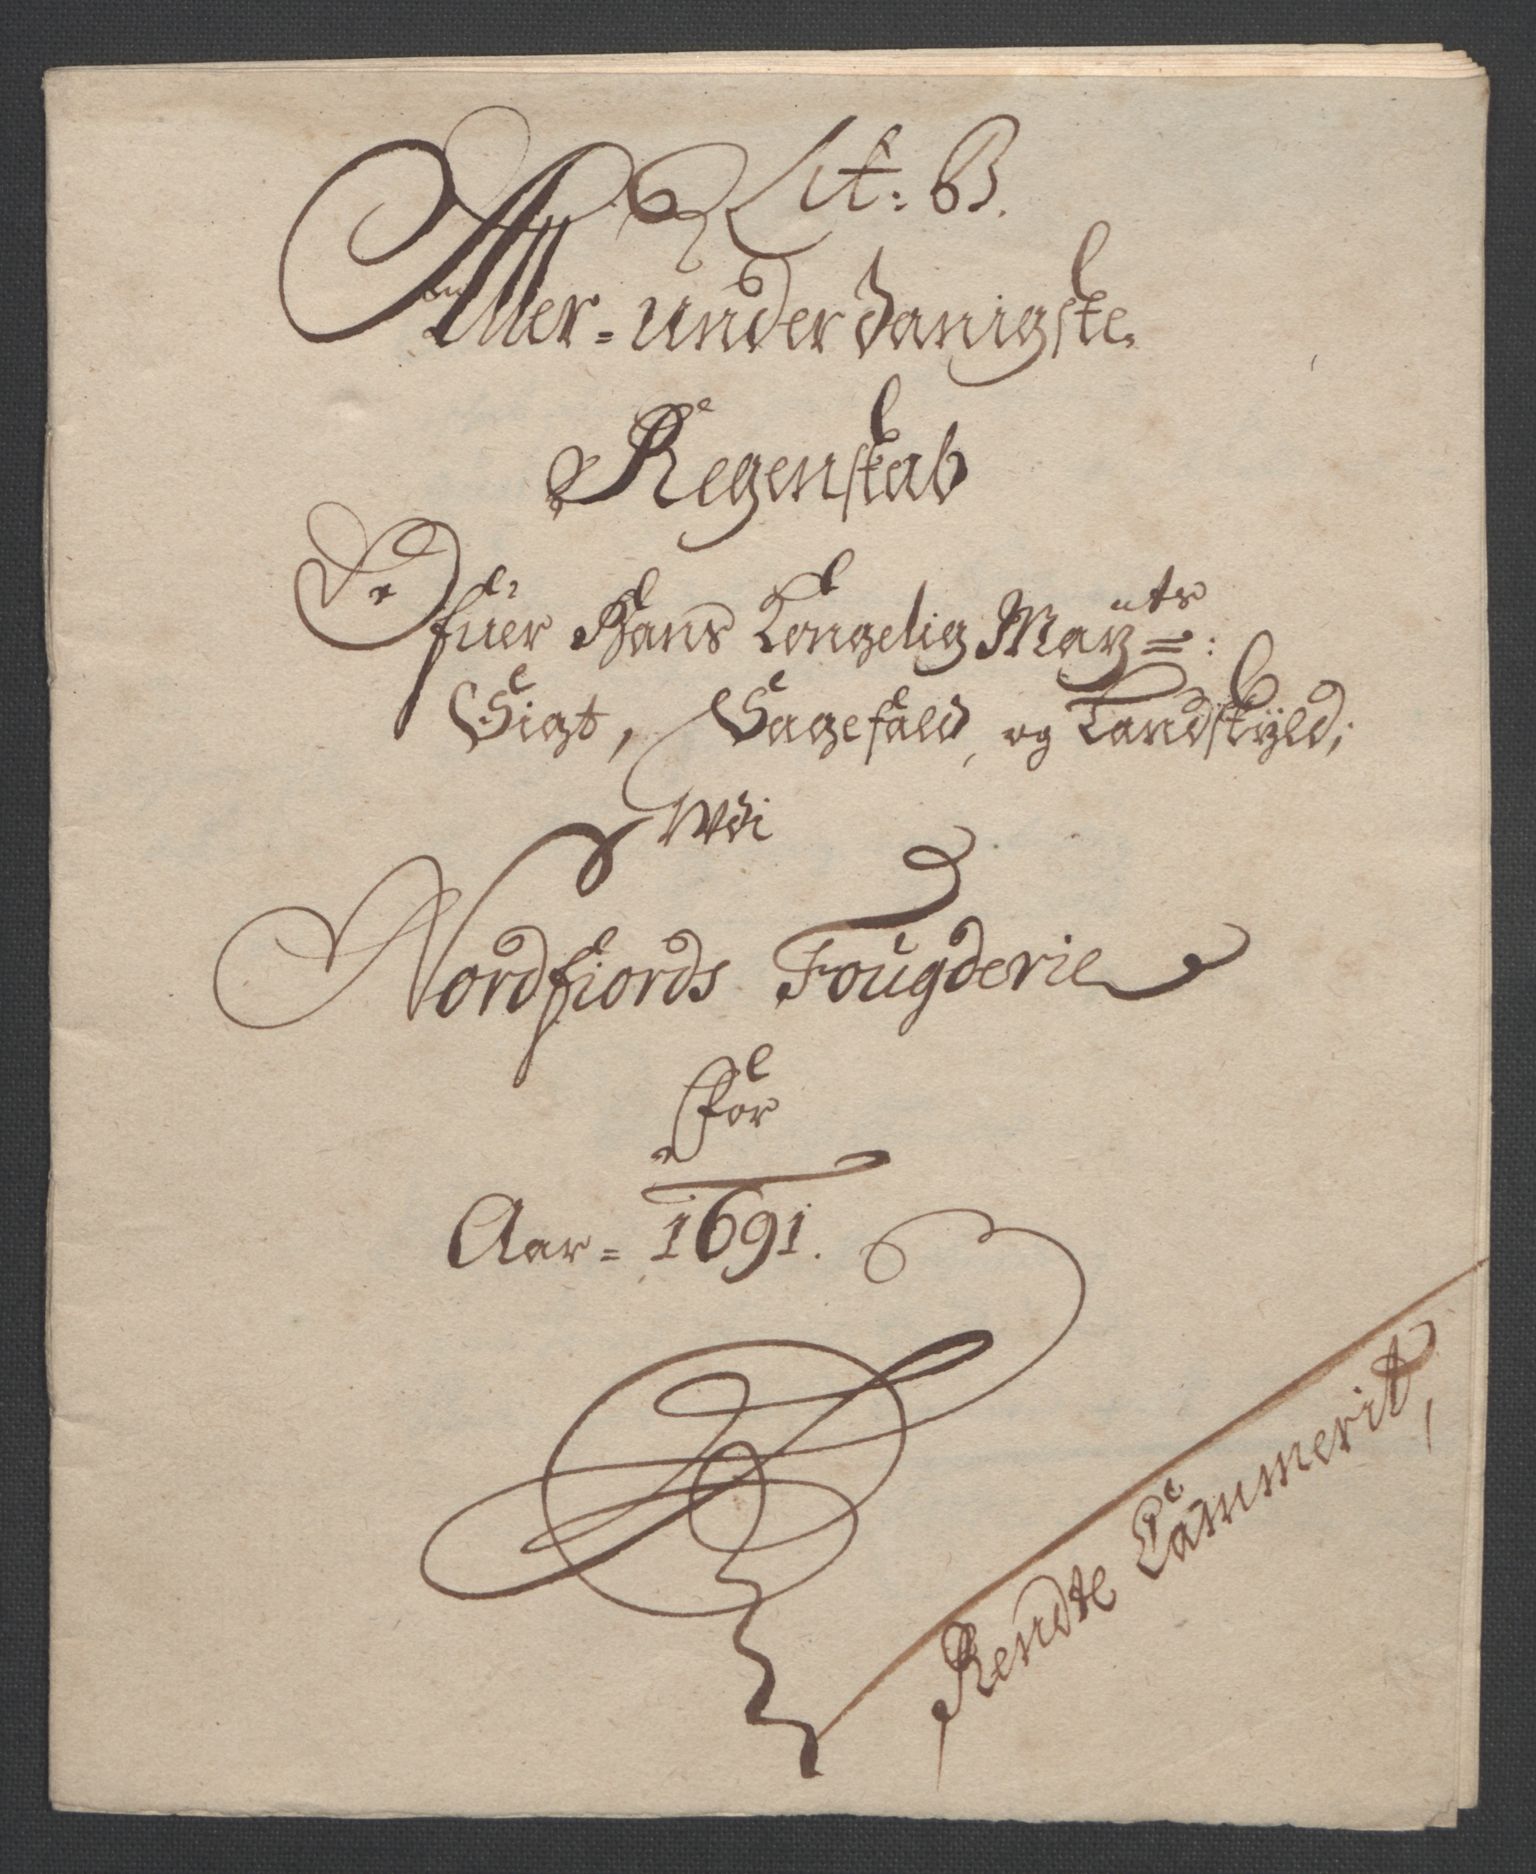 Lit: B.
Aller-underdanigste
Regenskab
Ofuer Hans Kongelig May:ts
Sigt, Sagefald, og Landskyld;
Wdi
Nordfiords Fougderie
For
Aar= 1691.
Rendte Cammerit,